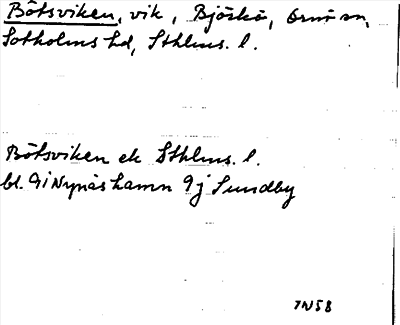 Båtsviken, vik, Björkö, Ornö sn,
Sotholms hd, Sthlms. l.
Båtsviken ek Sthlms. l.
bl. 9i Nynäshamn 9j Sundby
TN58